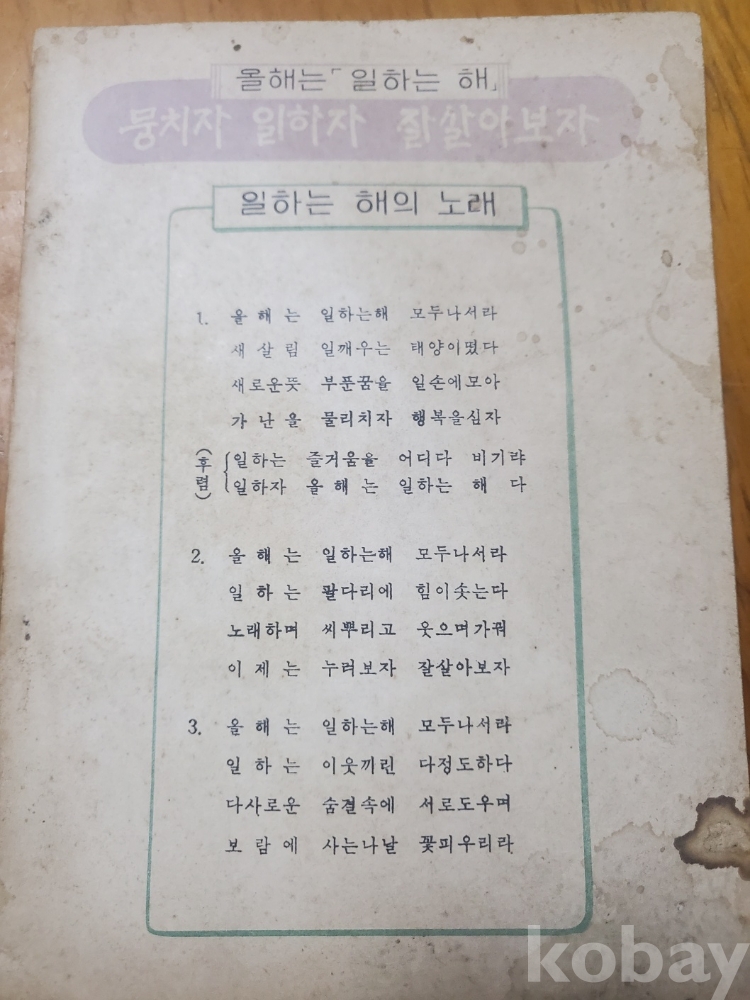 올해는「일하는 해」
뭉치자 일하자 잘살아보자
일하는 해의 노래
1. 올해는 일하는해 모두나서라
새살림 일깨우는 태양이떴다
새로운뜻 부푼꿈을 일손에모아
가난을 물리치자 행복을심자
(후렴) 일하는 즐거움을 어디다 비기랴
일하자 올해는 일하는 해다
2. 올해는 일하는해 모두나서라
일하는 팔다리에 힘이솟는다
노래하며 씨뿌리고 웃으며가꿔
이제는 누려보자 잘살아보자
3. 올해는 일하는해 모두나서라
일하는 이웃끼린 다정도하다
다사로운 숨결속에 서로도우며
보람에 사는나날 꽃피우리라
kobay